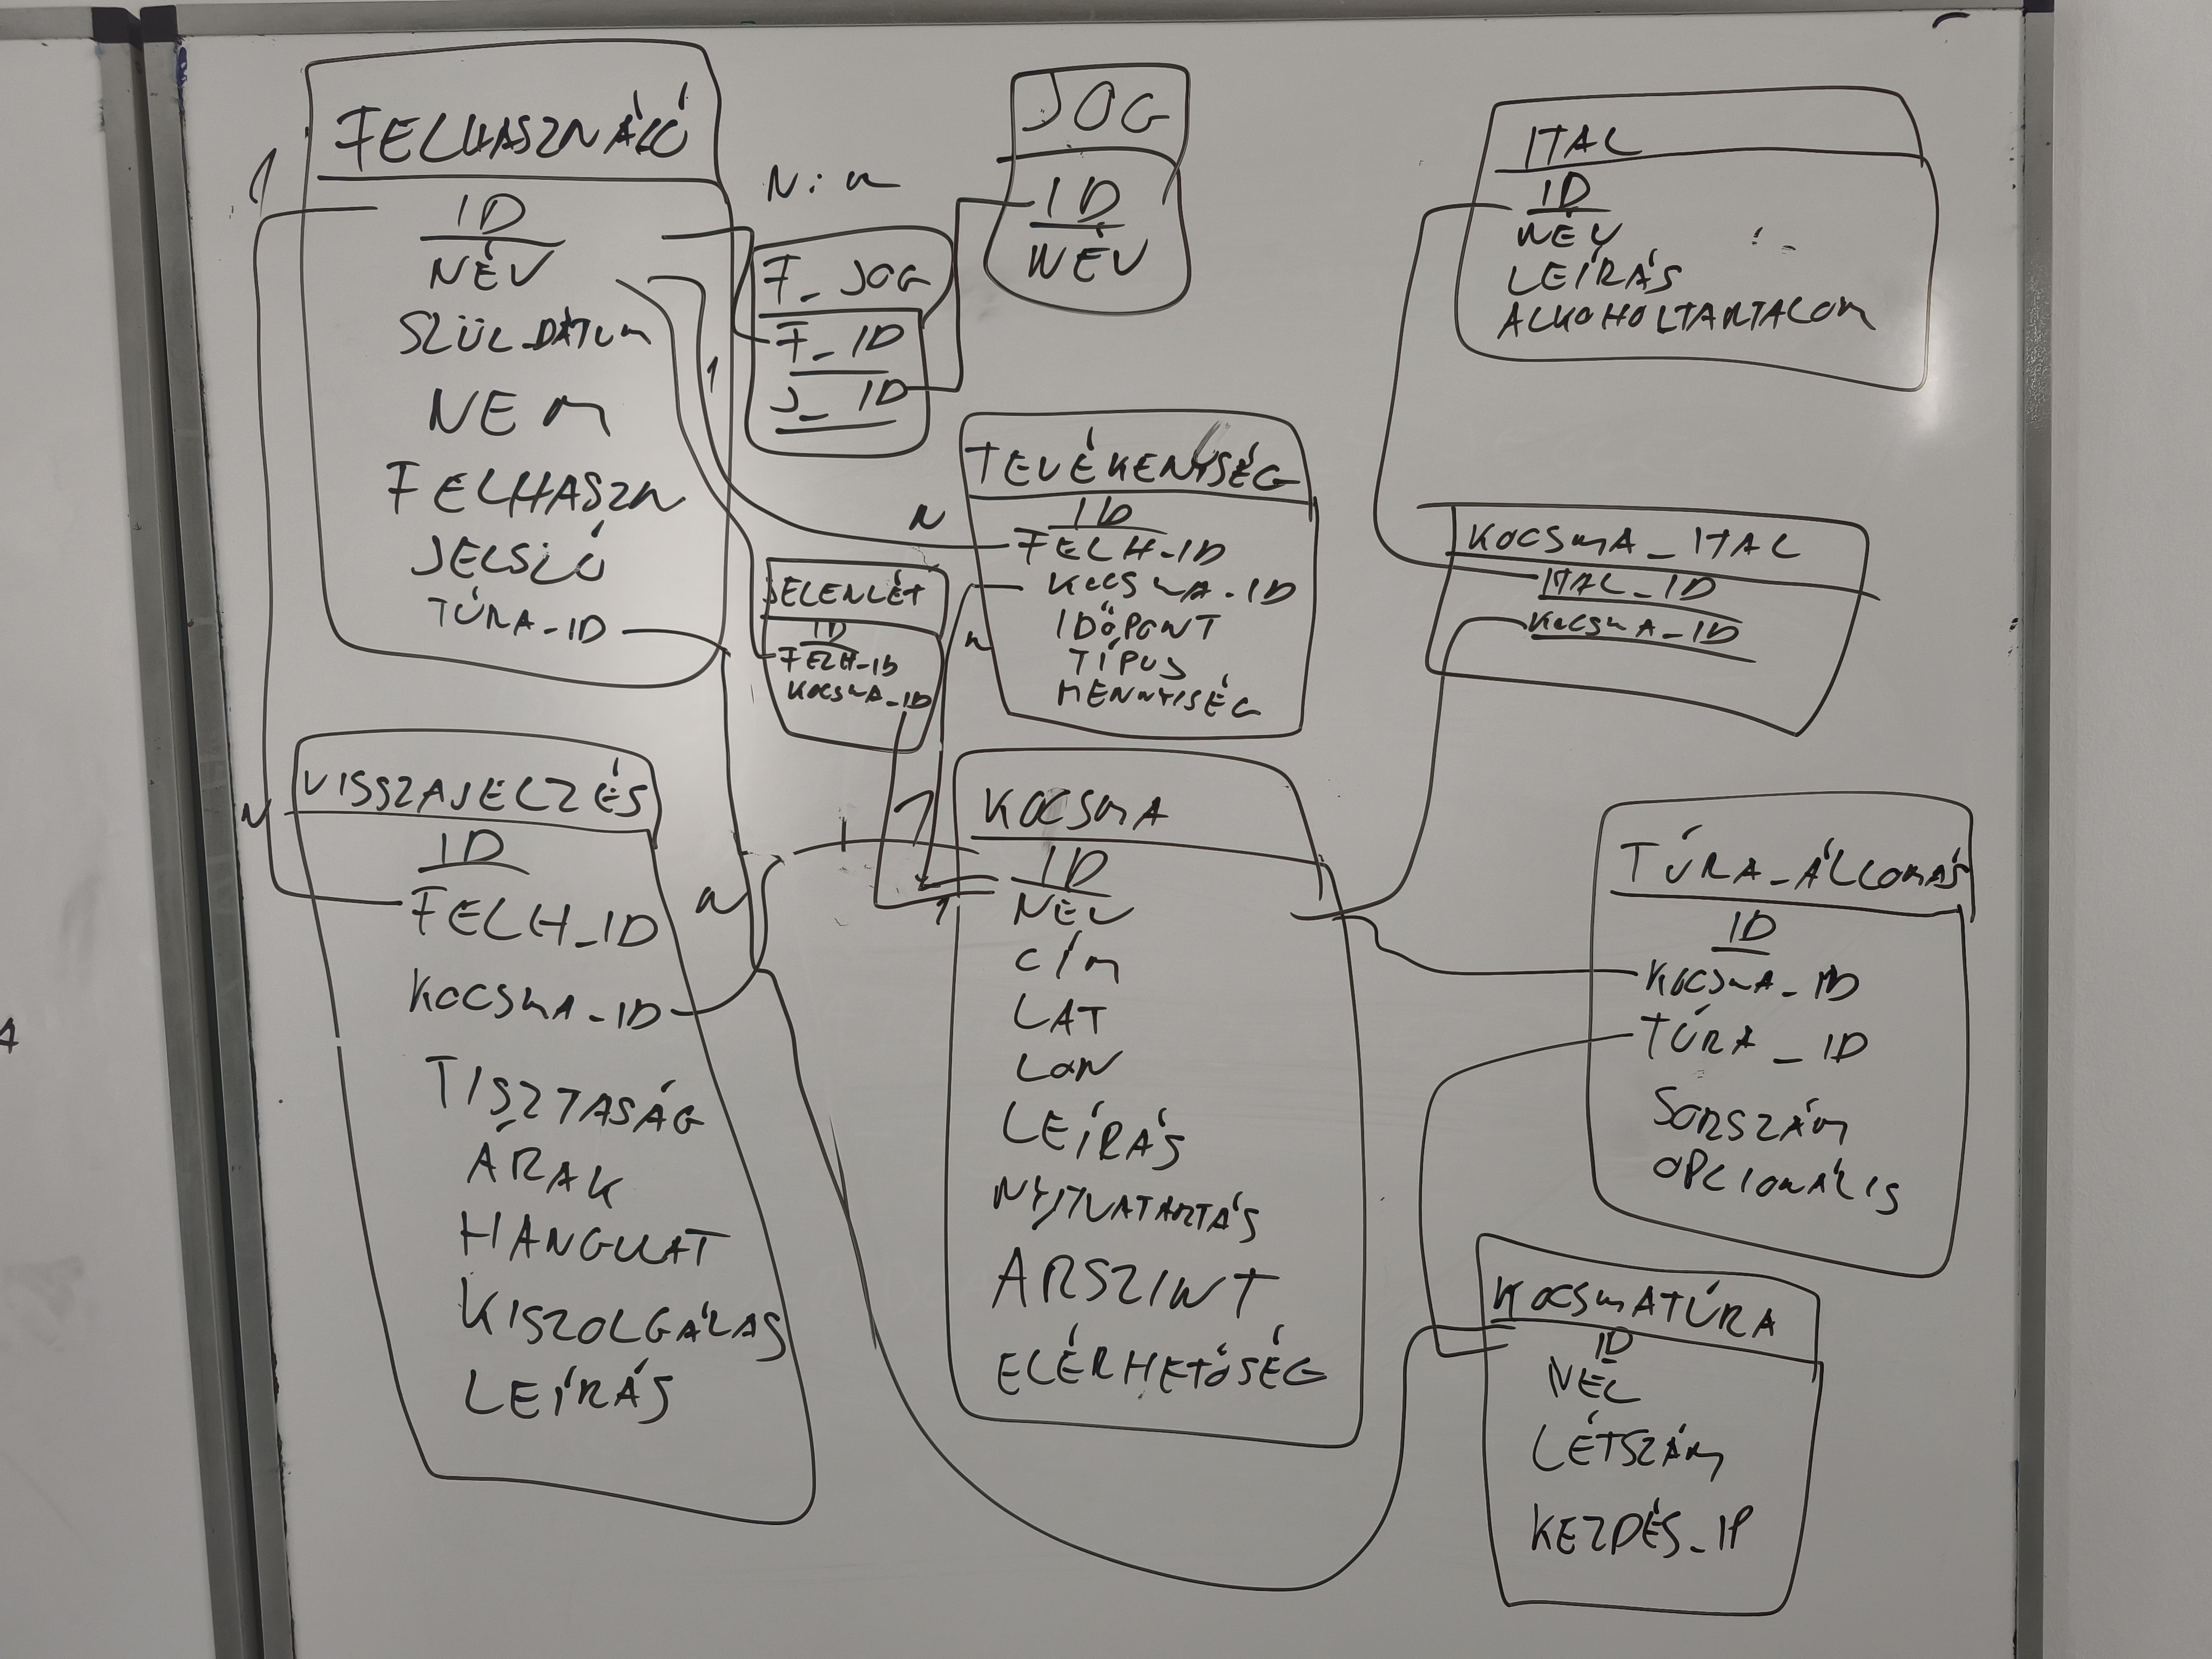 FELHASZNÁLÓ
ID
NÉV
SZÜL_DÁTUM
NEM
FELHASZN
JELSZÓ
TÚRA_ID
1
N:M
F_JOG
F_ID
J_ID
JOG
ID
NÉV
1
N
TEVÉKENYSÉG
ID
FELH_ID
KOCSMA_ID
IDŐPONT
TÍPUS
MENNYISÉG
N
JELENLÉT
ID
FELH_ID
KOCSMA_ID
ITAL
ID
NÉV
LEÍRÁS
ALKOHOLTARTALOM
KOCSMA_ITAL
ITAL_ID
KOCSMA_ID
N
VISSZAJELZÉS
ID
FELH_ID
KOCSMA_ID
TISZTASÁG
ÁRAK
HANGULAT
KISZOLGÁLÁS
LEÍRÁS
N
1
1
1
KOCSMA
ID
NÉV
CÍM
LAT
LON
LEÍRÁS
NYITVATARTÁS
ÁRSZINT
ELÉRHETŐSÉG
TÚRA_ÁLLOMÁS
ID
KOCSMA_ID
TÚRA_ID
SORSZÁM
OPCIONÁLIS
KOCSMATÚRA
ID
NÉV
LÉTSZÁM
KEZDÉS_IP
A